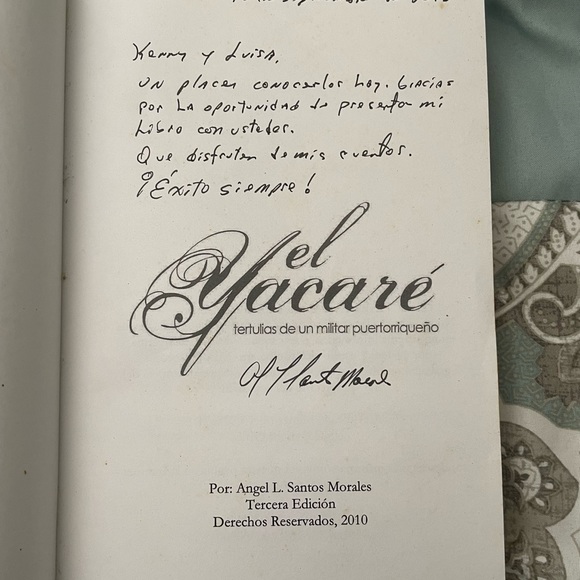 Kenny y Luisa,
un placer conocerlos hoy. Gracias
por la oportunidad de presentar mi
libro con ustedes.
Que disfruten de mis cuentos.
¡Éxito siempre!
el
Yacaré
tertulias de un militar puertorriqueño
Por: Angel L. Santos Morales
Tercera Edición
Derechos Reservados, 2010